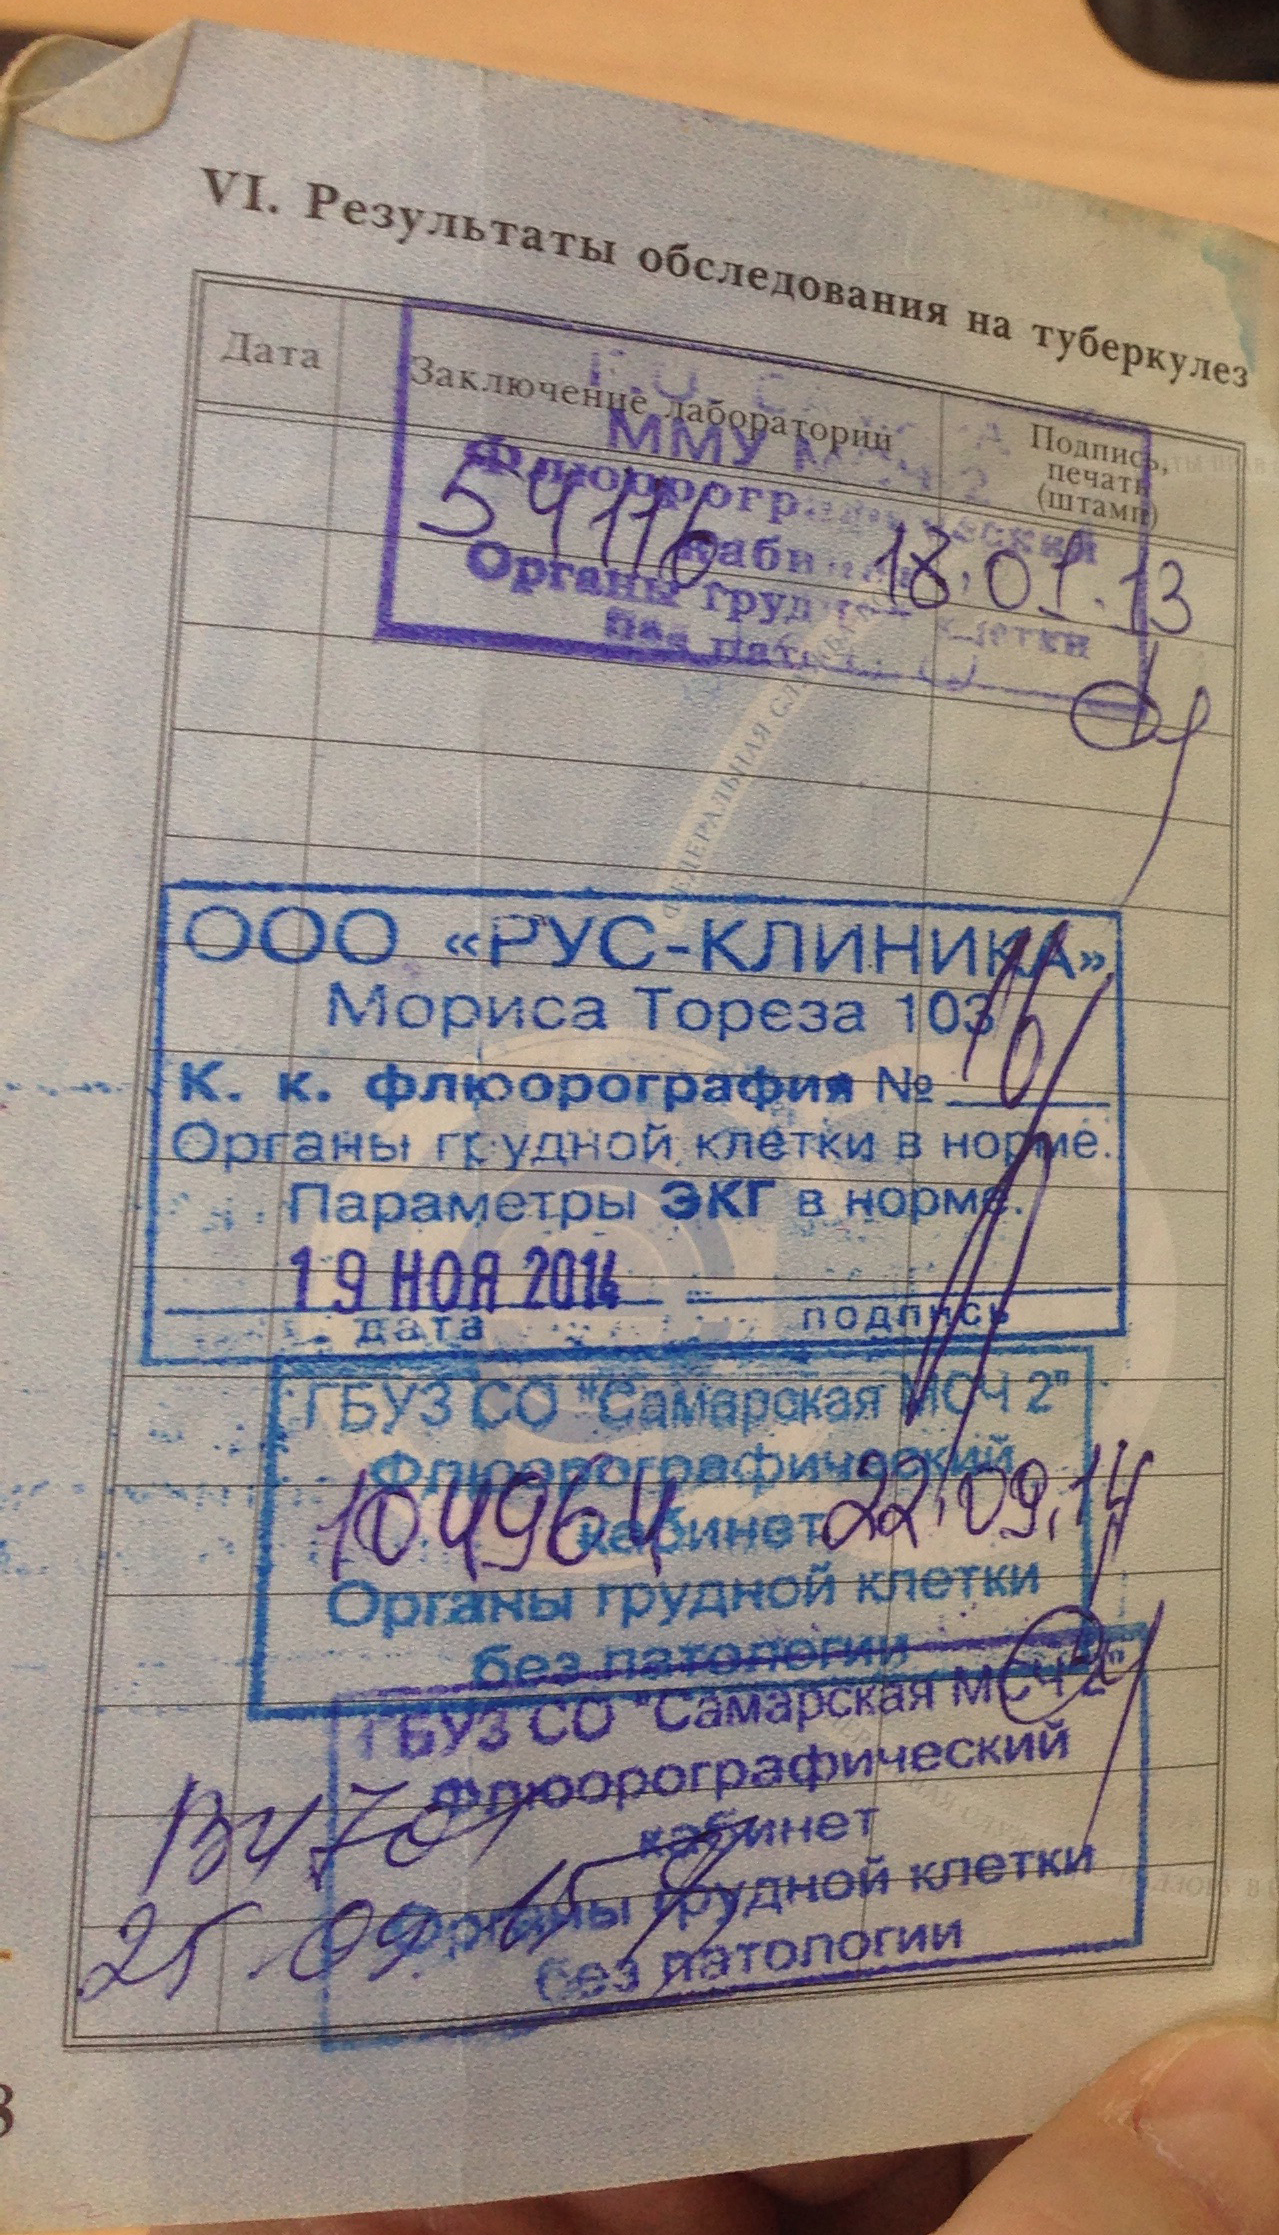 VI. Результаты обследования на туберкулез
Дата
Заключение лаборатории
Подпись,
печать
(штамп)
ММУ МСЧ 2
Флюорографический
54116 кабинет 18.01.13
Органы грудной клетки
без патологии
ФЕДЕРАЛЬНАЯ
ООО «РУС-КЛИНИКА»
Мориса Тореза 103
К. к. флюорография №
Органы грудной клетки в норме.
Параметры ЭКГ в норме.
19 НОЯ 2014
дата подпись
ГБУЗ СО "Самарская МСЧ 2"
Флюорографический
104964 кабинет 22.09.14
Органы грудной клетки
без патологии
ГБУЗ СО "Самарская МСЧ 2"
Флюорографический
кабинет
Органы грудной клетки
25.09.15
без патологии